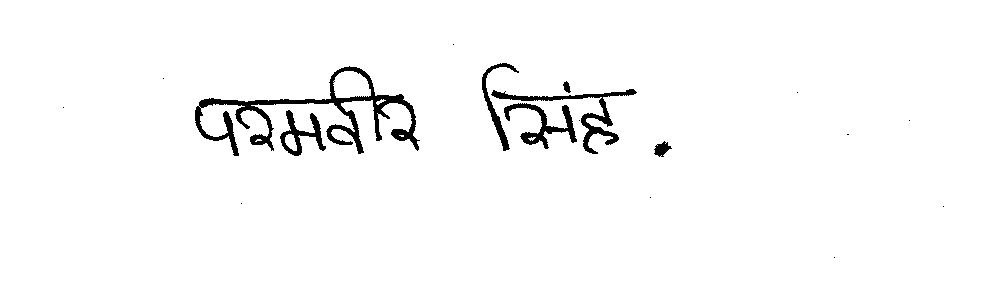 परमवीर सिंह.